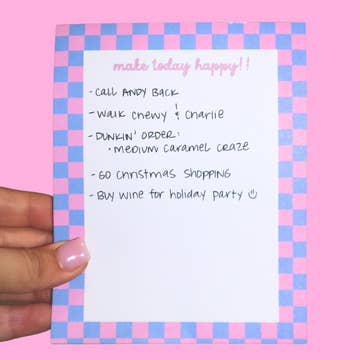 make today happy!!
- CALL ANDY BACK
- WALK CHEWY & CHARLIE
- DUNKIN' ORDER:
• MEDIUM CARAMEL CRAZE
- GO CHRISTMAS SHOPPING
- BUY WINE FOR HOLIDAY PARTY ☺